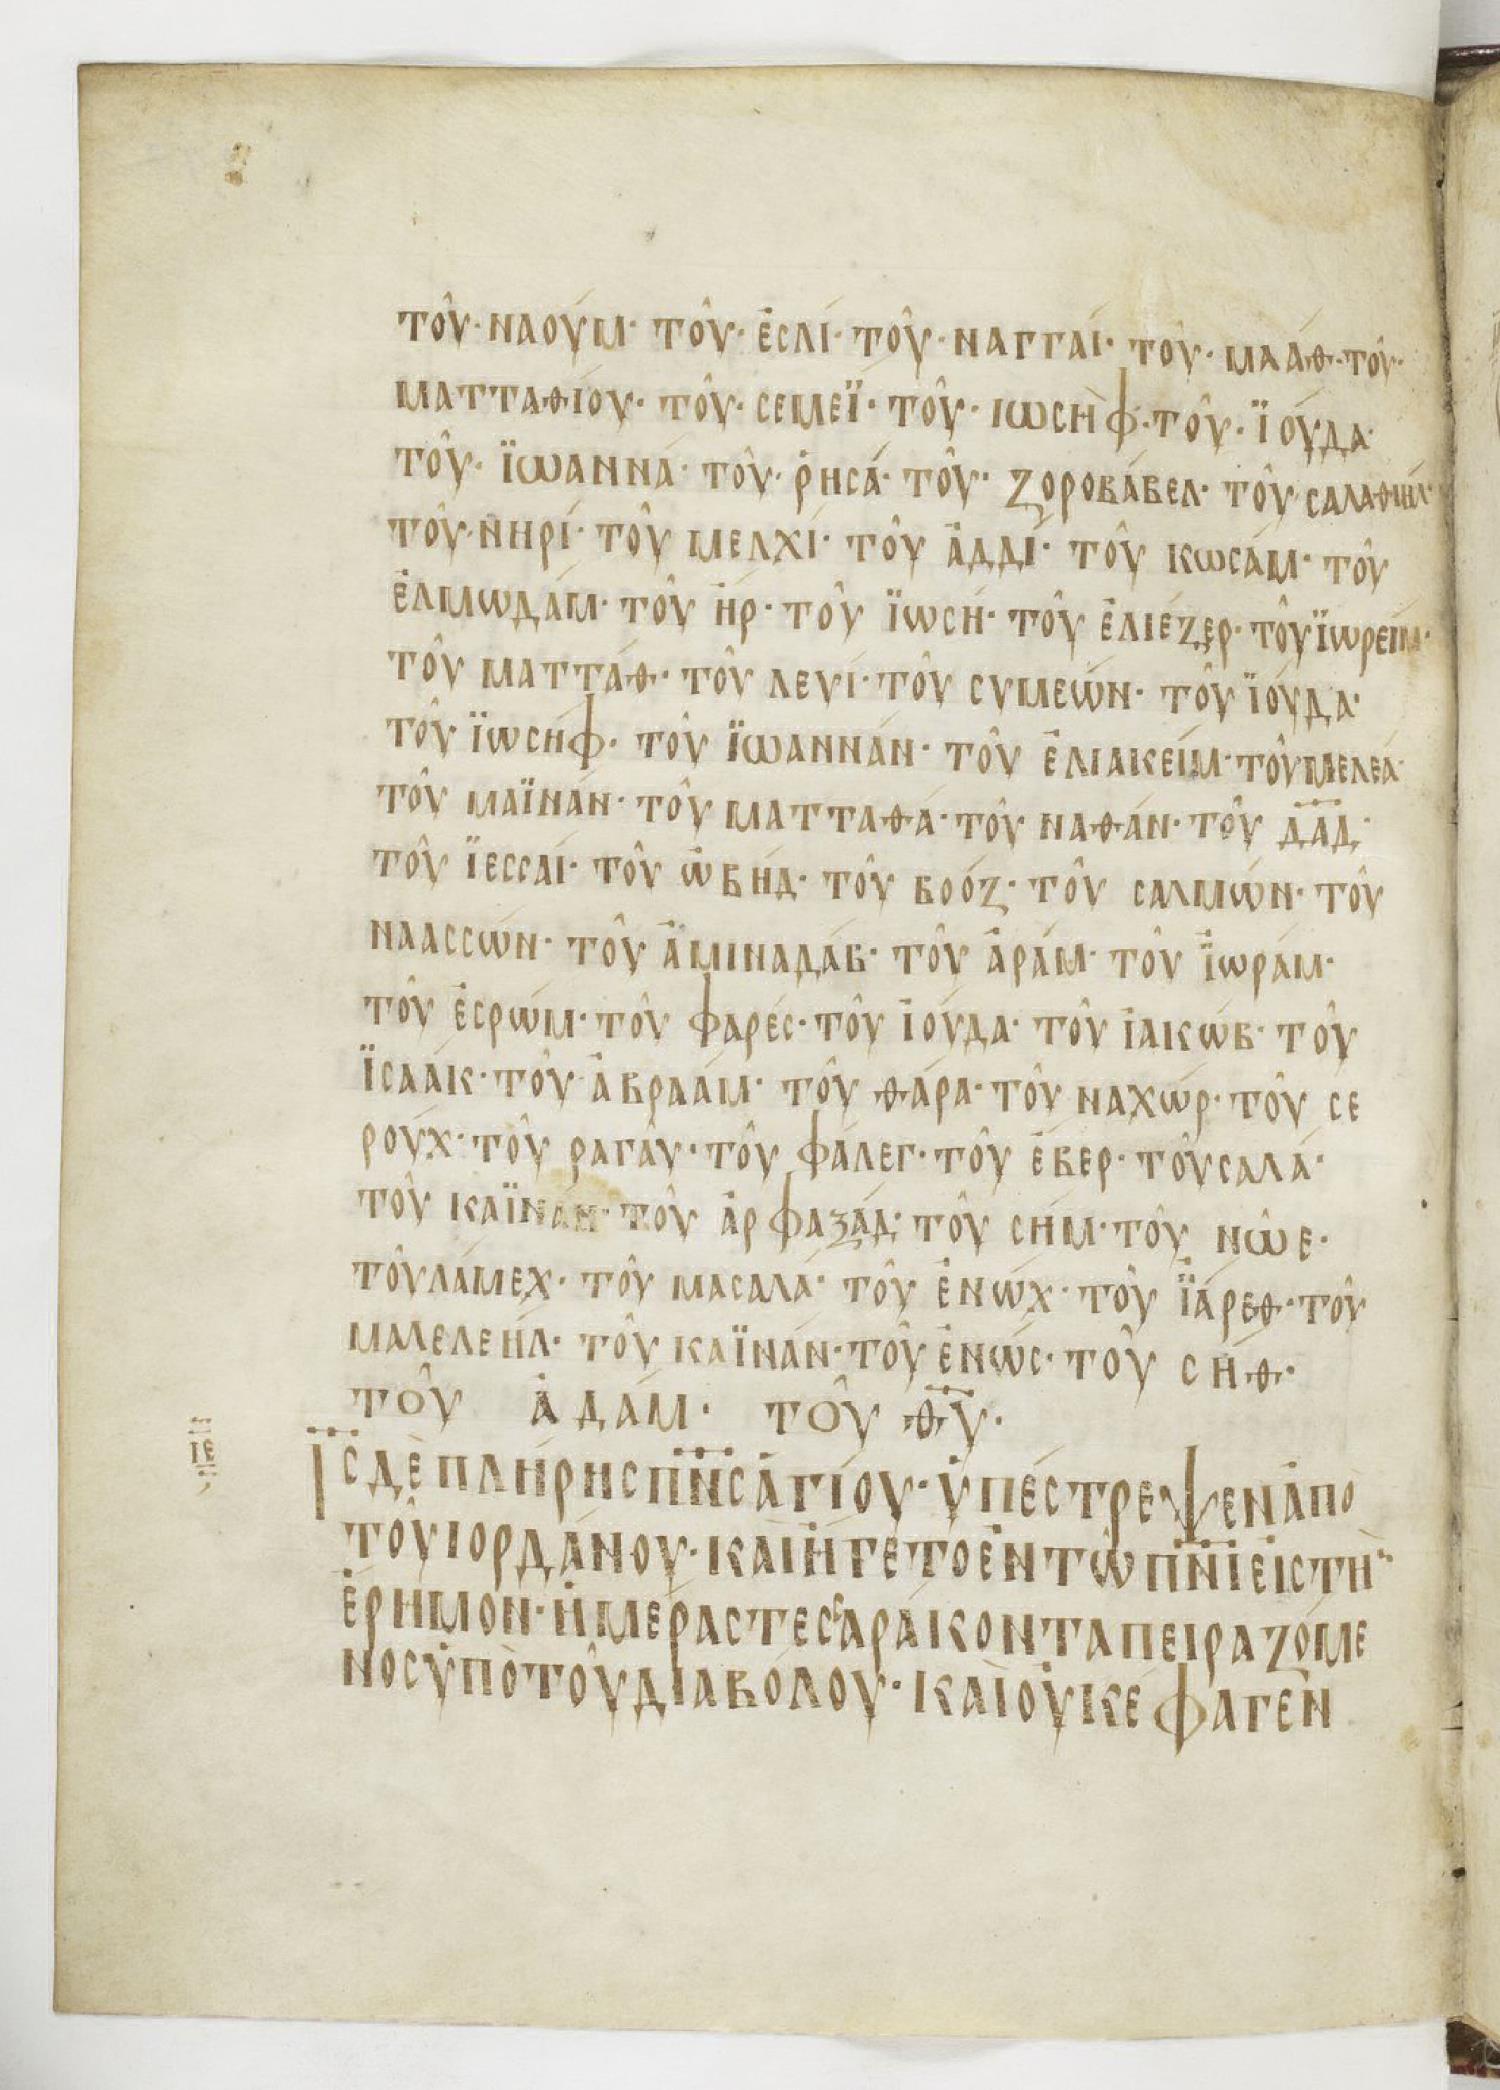 τοῦ· ναούμ· τοῦ· ἐσλί· τοῦ· ναγγαί· τοῦ· μαάθ· τοῦ·
ματταθίου· τοῦ· σεμεϊ· τοῦ· ιωσὴφ· τοῦ· ϊούδα·
τοῦ· ϊωαννά· τοῦ· ῥησά· τοῦ· ζοροβάβελ· τοῦ σαλαθιήλ·
τοῦ· νηρί· τοῦ μελχί· τοῦ ἀδδί· τοῦ κωσάμ· τοῦ
ἐλμωδάμ· τοῦ ἠρ· τοῦ ϊωσή· τοῦ ἐλιέζερ· τοῦ ϊωρείμ·
τοῦ ματτάθ· τοῦ λευί· τοῦ συμεών· τοῦ ϊούδα·
τοῦ ϊωσήφ· τοῦ ϊωαννάν· τοῦ ἐλιακείμ· τοῦ μελεά·
τοῦ μαϊνάν· τοῦ ματταθά· τοῦ ναθάν· τοῦ δ̅α̅δ̅·
τοῦ ϊεσσαί· τοῦ ὠβήδ· τοῦ βοόζ· τοῦ σαλμών· τοῦ
ναασσών· τοῦ ἀμιναδάβ· τοῦ ἀράμ· τοῦ ἰωράμ·
τοῦ ἐσρώμ· τοῦ φαρές· τοῦ ἰούδα· τοῦ ἰακώβ· τοῦ
ϊσαάκ· τοῦ ἀβραάμ· τοῦ θάρα· τοῦ ναχώρ· τοῦ σε
ρούχ· τοῦ ραγαῦ· τοῦ φάλεγ· τοῦ ἐβερ· τοῦ σαλά·
τοῦ καϊνάν· τοῦ ἀρφαξάδ· τοῦ σήμ· τοῦ νῶε·
τοῦ λάμεχ· τοῦ μασαλά· τοῦ ἐνώχ· τοῦ ϊάρεθ· τοῦ
μαλελεήλ· τοῦ καϊνάν· τοῦ ἐνώς· τοῦ σήθ·
τοῦ ἀδάμ· τοῦ θ̅υ̅·
ιε
Ι̅ς̅ δὲ πλήρης π̅ν̅ς̅ ἁγίου· ὑπέστρεψεν ἀπὸ
τοῦ ιορδάνου· καὶ ἤγετο ἐν τῶ π̅ν̅ι̅ εἰς τὴν
ἐρημον· ἡμέρας τεσσαράκοντα πειραζόμε
νος ὑπὸ τοῦ διαβόλου· καὶ οὐκ ἔφαγεν